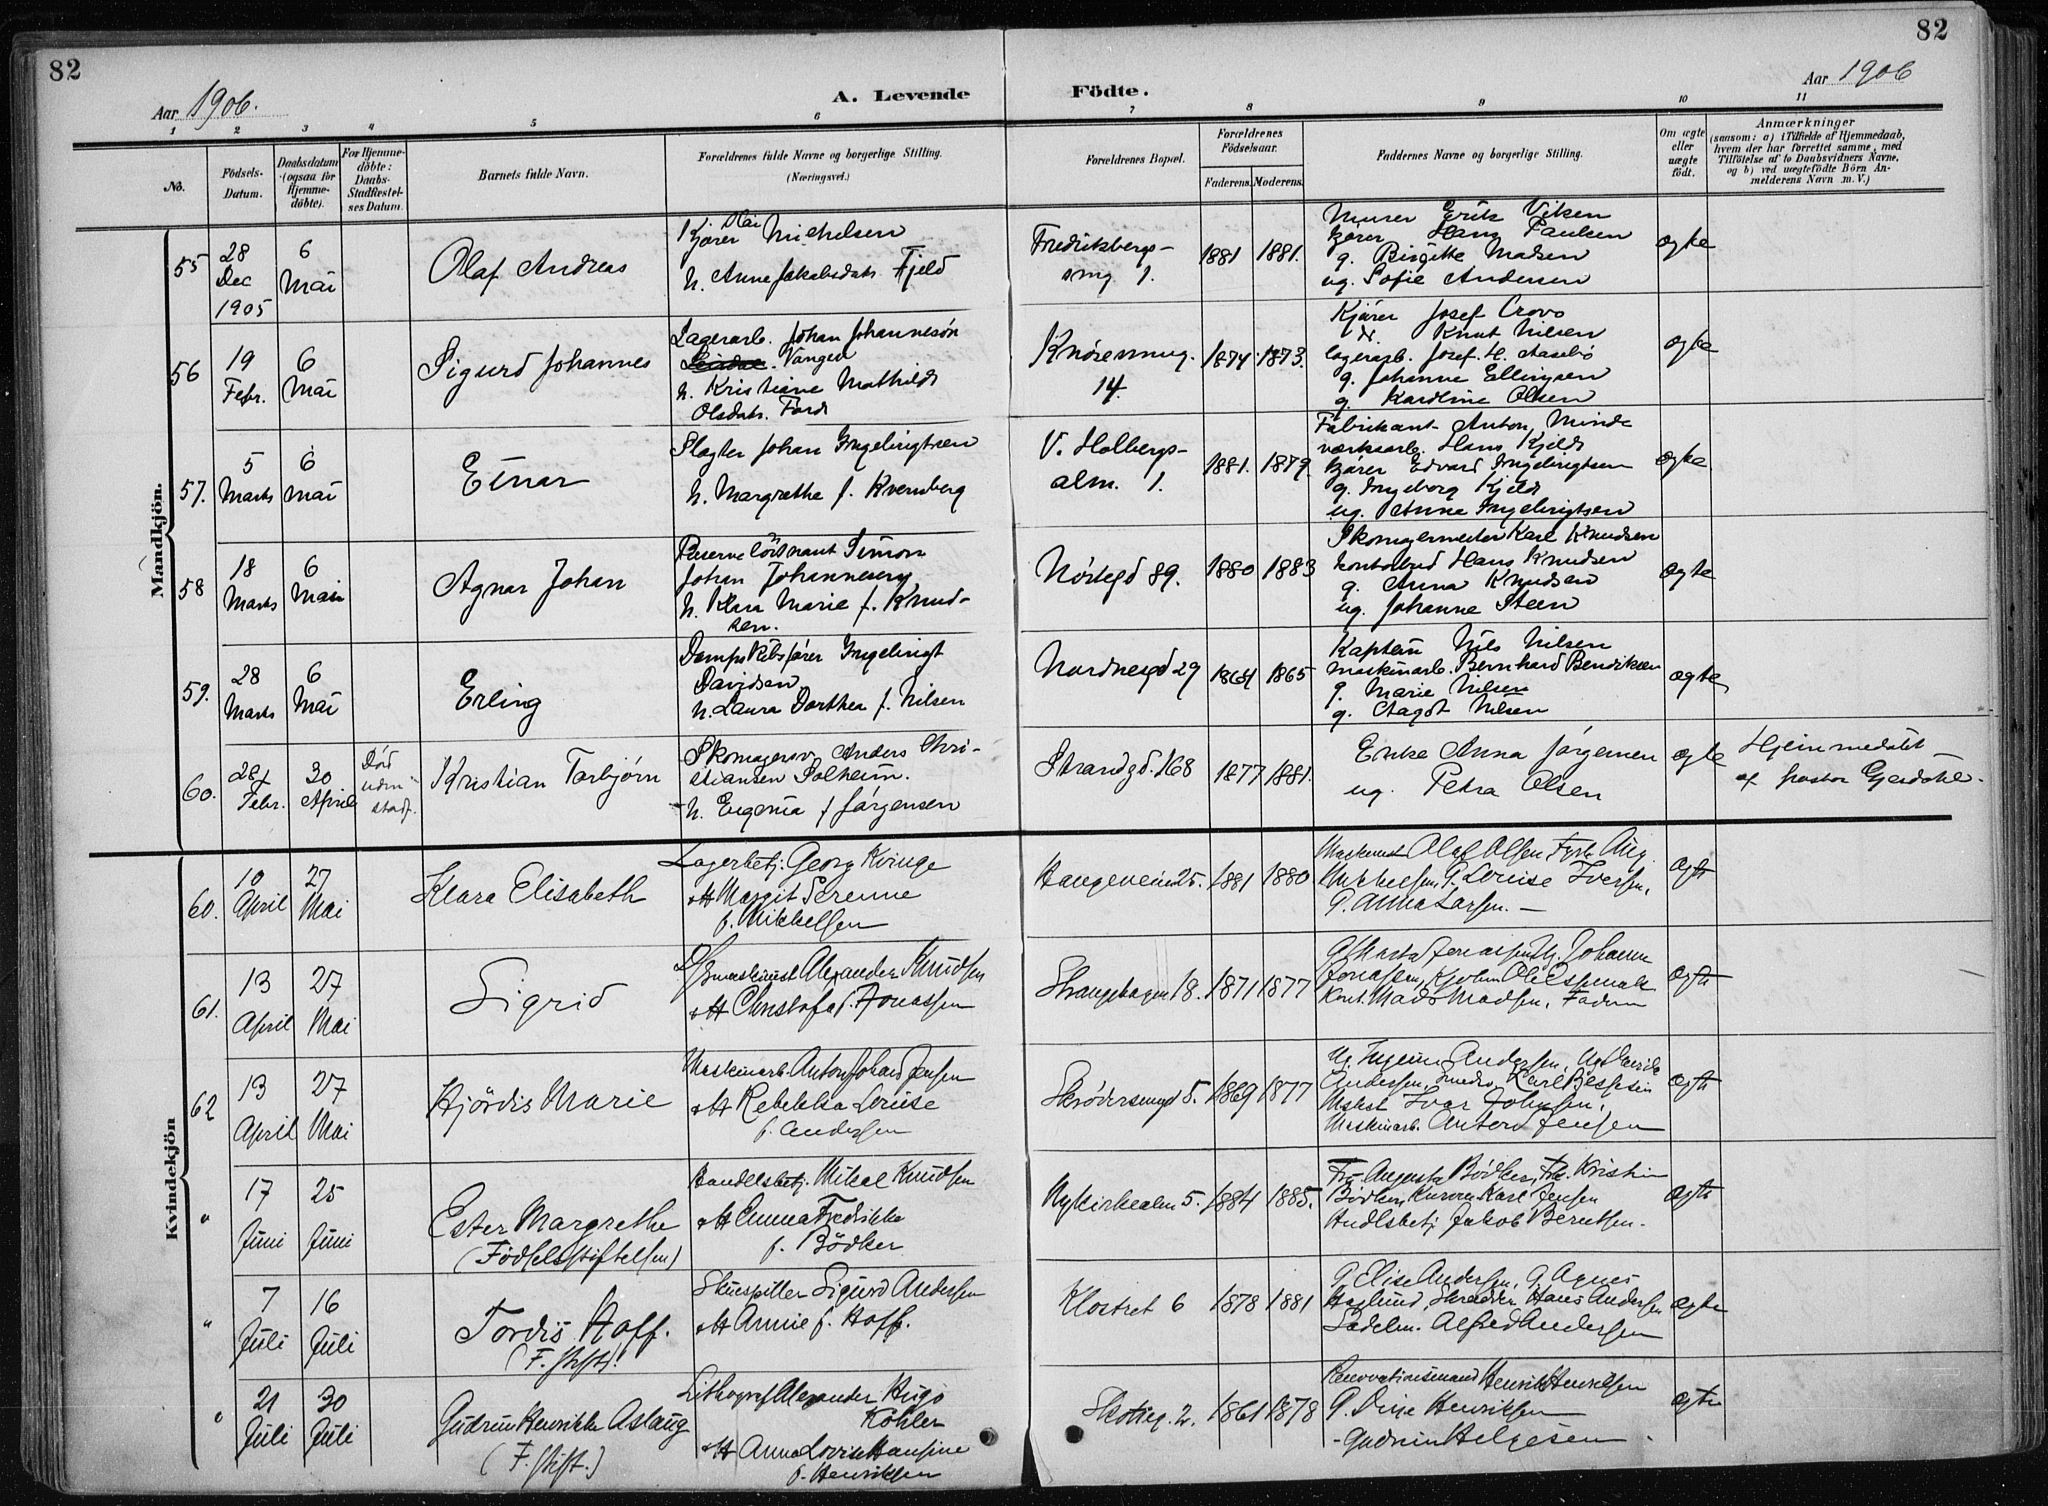 82
82
Aar 1906.
A. Levende
Födte.
Aar 1906
1 2 3 4 5 6 7 8 9 10 11
No.
Födsels-
Datum.
Daabsdatum
(ogsaa for
Hjemme-
döbte).
For Hjemme-
döbte:
Daabs-
Stadfæstel-
ses Datum.
Barnets fulde Navn.
Forældrenes fulde Navne og borgerlige Stilling.
(Næringsvei.)
Forældrenes Bopæl.
Forældrenes
Födselsaar.
Faderens. Moderens.
Faddernes Navne og borgerlige Stilling.
Om ægte
eller
uægte
födt.
Anmærkninger
(saasom: a) i Tilfælde af Hjemmedaab,
hvem der har forrettet samme, med
Tilföielse af to Daabsvidners Navne,
og b) ved uægtefödte Börn An-
melderens Navn m. V.)
Mandkjön.
55
28
Dec
1905
6
Mai
Olaf Andreas
Kjører Michelsen
h. Anne Jakobsdatr. Fjeld
Fredriksbergs-
smg 1.
1881 1881.
Murer Erik Viken
kjører Hans Paulsen
g. Birgitte Madsen
ug. Sofie Andersen
ægte
56
19
Febr.
6
Mai
Sigurd Johannes
Lagerarb. Johan Johannesøn
Vangen
h. Kristiane Mathilde
Olsdatr.
Knøsesmug.
14.
1874 1873.
Kjører Josef Crovo
d. Knut Nilsen
lagerarb. Josef. H. Aasebø
g. Johanne Ellingsen
g. Karoline Olsen
ægte
57.
5
Marts
6
Mai
Einar
Slagter Johan Ingebrigtsen
h. Margrethe f. Kvernberg
V. Holbergs-
alm. 1.
1881. 1879.
Fabrikant Anton Minde
værksarb. Hans Kjelds
kjører Edvard Ingebrigtsen
g. Ingeborg Kjelds
ug. Anne Ingebrigtsen
ægte
58
18
Marts
6
Mai
Agnar Johan
Reserveløitnant Simon
Johan Johannesen
h. Klara Marie f. Knud-
sen.
Nöstegd 89.
1880 1883
Skomagermester Karl Knudsen
kontorbud Hans Knudsen
g. Anna Knudsen
ug. Johanne Steen
ægte
59.
28
Marts
6
Mai
Erling
Dampskibsfører Ingebrigt
Davidsen
h. Laura Dorthea f. Nilsen
Nordnesgd 29
1864 1865
Kaptein Nils Nilsen
maskinarb. Bernhard Bendiksen
g. Marie Nilsen
g. Aagot Nilsen
ægte
60.
26
Febr.
30
April
Død
uden
stadf.
Kristian Torbjørn
Skomagersv Anders Chri-
stiansen Solheim.
h. Eugenia f Jørgensen
Strandgd. 168
1877 1881.
Enke Anna Jørgensen
ug. Petra Olsen
ægte
Hjemmedøbt
af pastor Gjerdahl.
Kvindekjön
60.
10
April
27
Mai
Klara Elisabeth
Lagerbetj. Georg Kvinge
o H Margit Serenne
f. Mikkelsen
Haugeveien 25.
1881 1880
Maskinist Olaf Olsen, Fyrb. Aug.
Mikkelsen, G. Lovise Iversen,
G. Anna Larsen.
ægte
61.
13
April
27
Mai
Sigrid
D/Smaskinist Alexander Knudsen
o H Christofa f. Jonassen
Strangehagen 18.
1871 1877
Jonassen,
Mads Madsen, Faderen
ægte
62
13
April
27
Mai
Hjördis Marie
Maskinarb. Anton Johan Jensen
o H Rebekka Lovise
f. Andersen
Skrödersmug 5.
1869 1877
Andersen,
Andersen, smedsv.
Ivar Johnsen,
Maskinarb. Anton Jensen
ægte
"
17
Juni
25
Juni
Ester Margrethe
(Födselsstiftelsen)
Handelsbetj. Mikal Knudsen
o H Emma Fredrikke
f. Bödker
Nykirkealm 5.
1884 1885.
Fr. Augusta Bödker, Frk. Kristin
Bödker, Karl Jensen
Hndlsbetj Jakob Berntsen.
ægte
"
7
Juli
16
Juli
Tordis Hoff.
(F. stift).
Skuespiller Sigurd Andersen
o H Annie f. Hoff.
Klostret 6
1878 1881
G Elise Andersen, G. Agnes
Haglund, Skrædder Hans Andersen
Sadelm. Alfred Andersen
ægte
"
21
Juli
30
Juli
Gudrun Henrikke Aslaug
(F. stift.)
Lithograf Alexander Hugo
Köhler
o H Anna Lovise Hansine
f. Henriksen
Skotteg. 2.
1861 1878
Renovationsmand Henrik Henriksen
G. Dina Henriksen
- Gudrun Helgesen
ægte